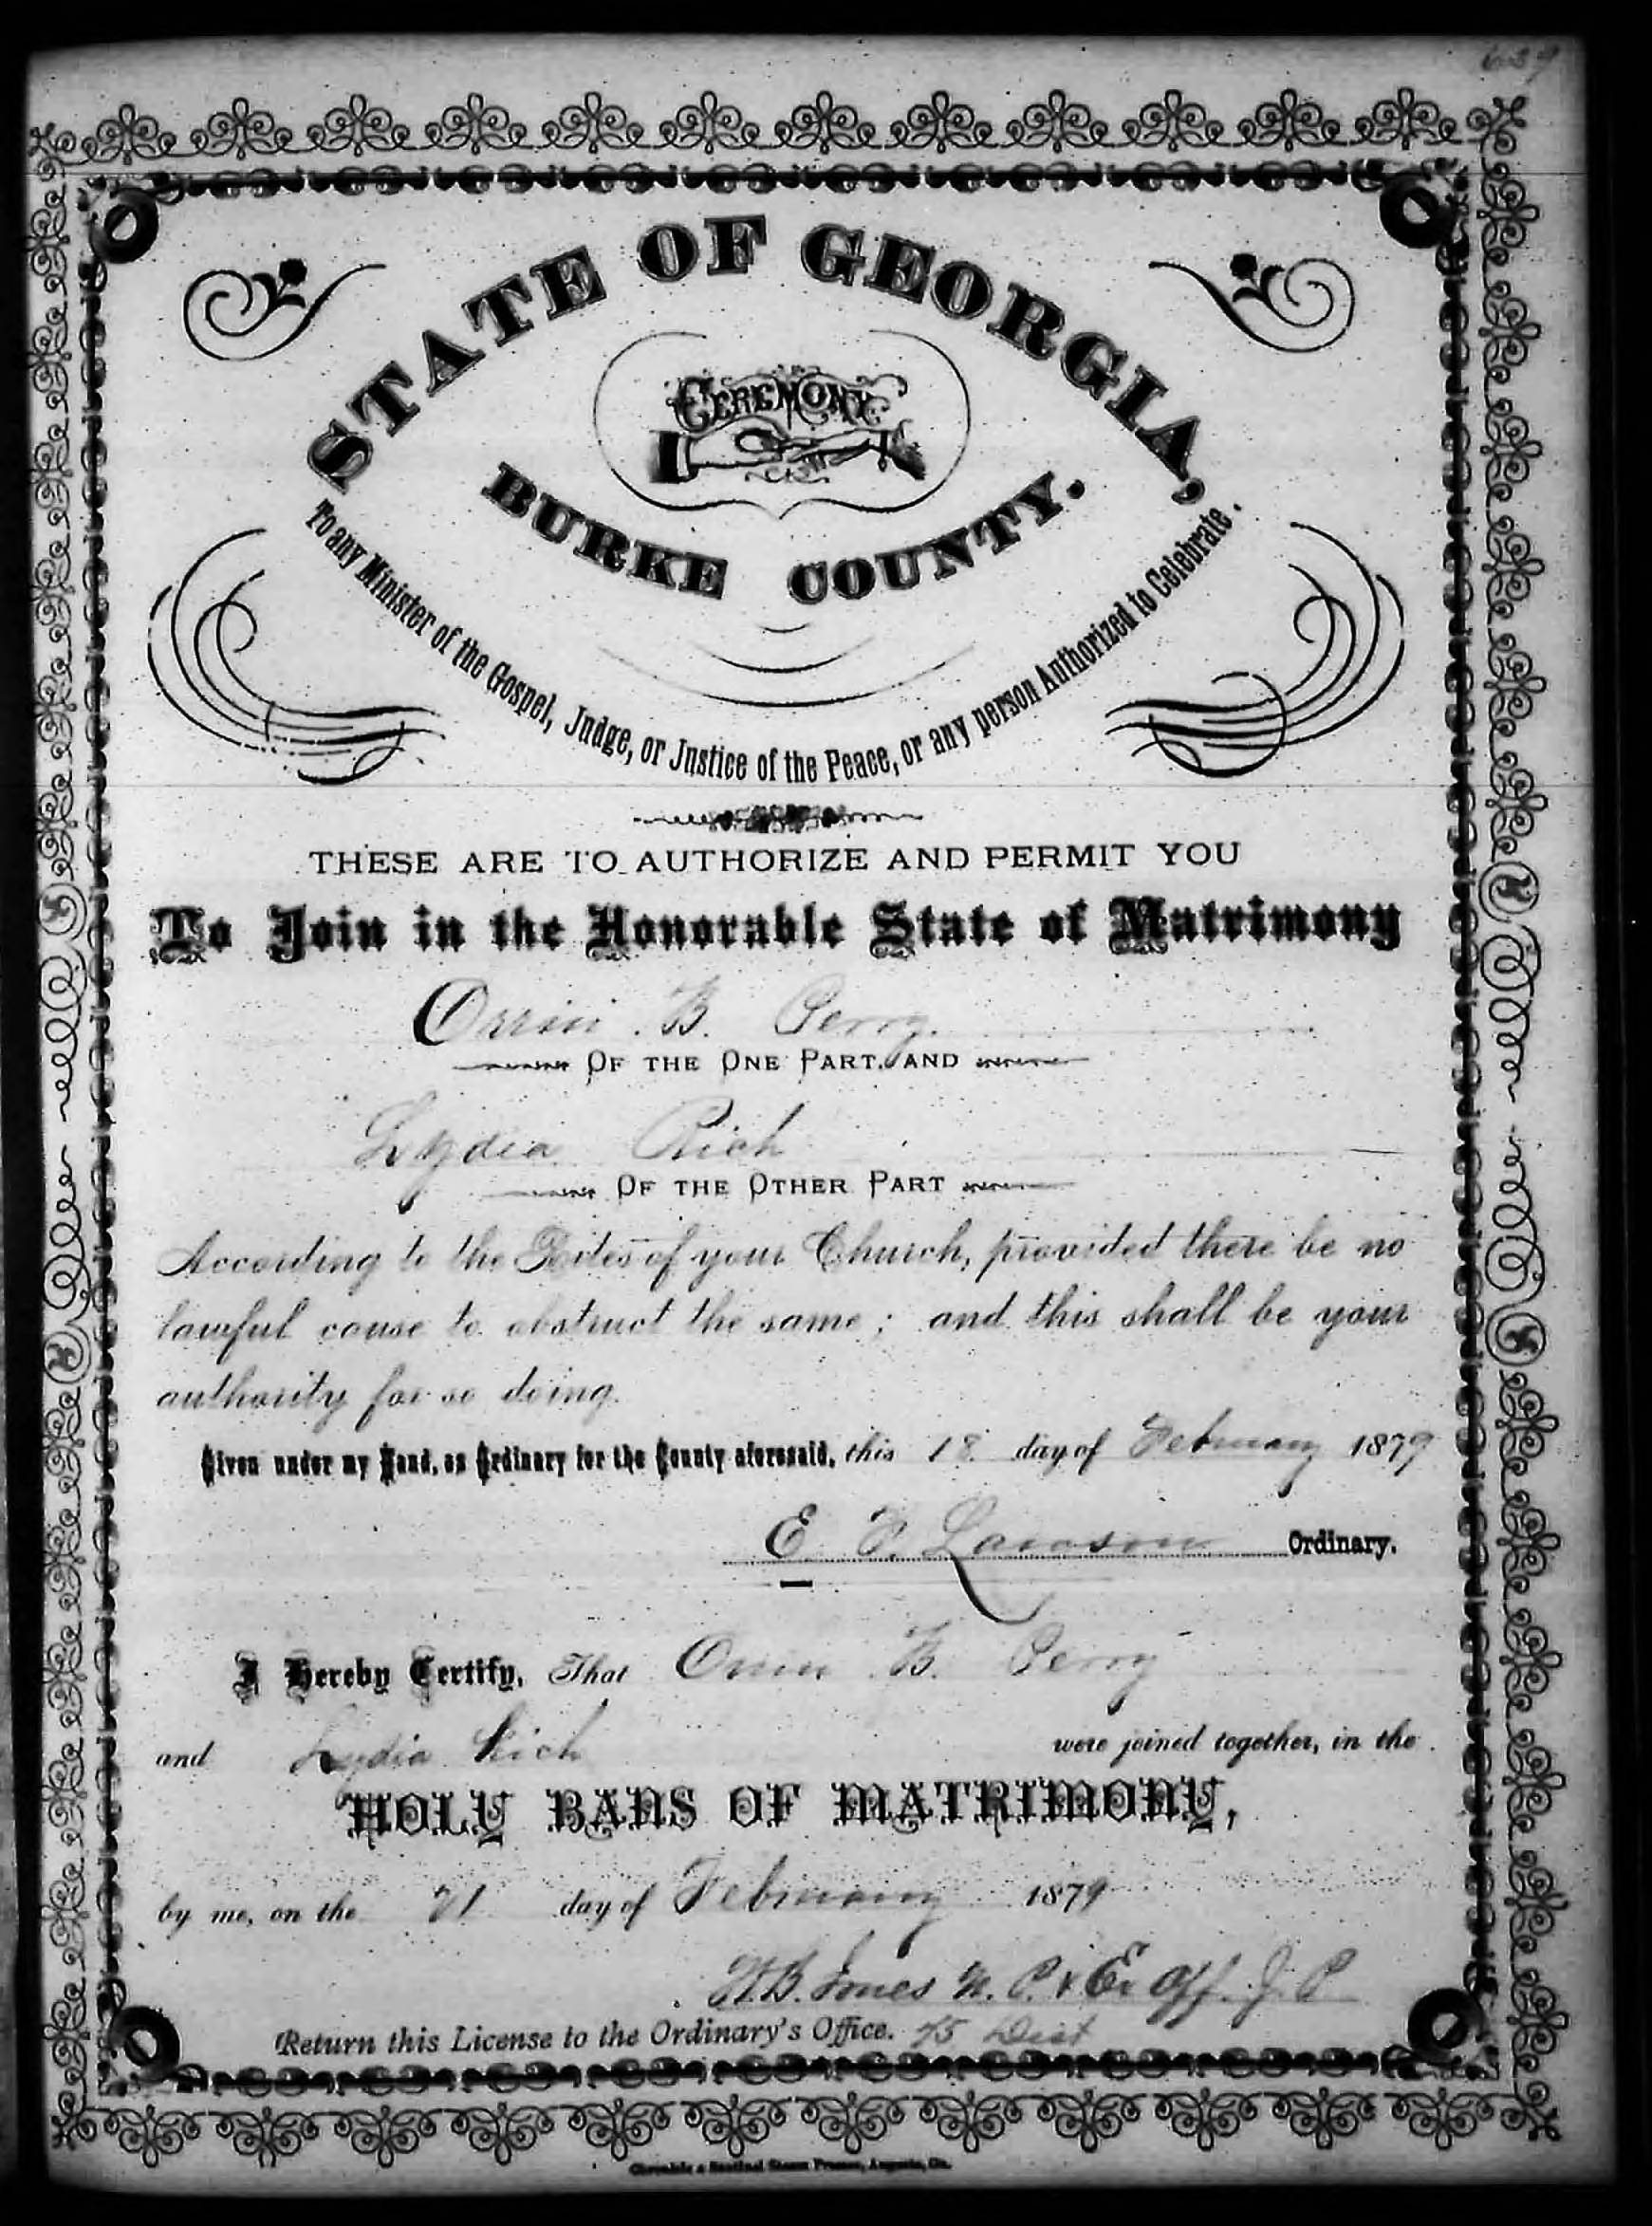 STATE OF GEORGIA,
CEREMONY
BURKE COUNTY.
To any Minister of the Gospel, Judge, or Justice of the Peace, or any person Authorized to Celebrate.
THESE ARE TO AUTHORIZE AND PERMIT YOU
To Join in the Honorable State of Matrimony
Orrin B. Perry
OF THE ONE PART, AND
Lydia Rich
OF THE OTHER PART
According to the Rites of your Church, provided there be no
lawful cause to obstruct the same; and this shall be your
authority for so doing.
Given under my Hand, as Ordinary for the County aforesaid, this 18 day of February 1879
E. P. Lawson Ordinary.
I Hereby Certify, That Orrin B. Perry
and Lydia Rich were joined together, in the
HOLY BANS OF MATRIMONY,
by me, on the 21 day of February 1879
W.B. Jones N. P. & Ex Off. J. P
Return this License to the Ordinary's Office. 75 Dist
Chronicle & Sentinel Steam Presses, Augusta, Ga.